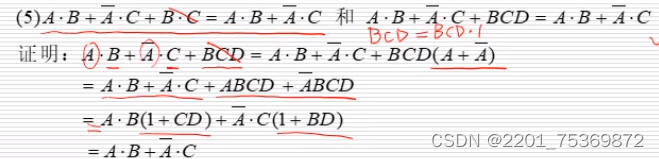 (5) A·B + A̅·C + B·C = A·B + A̅·C 和 A·B + A̅·C + BCD = A·B + A̅·C
BCD = BCD·1
证明: A·B + A̅·C + BCD = A·B + A̅·C + BCD(A + A̅)
= A·B + A̅·C + ABCD + A̅BCD
= A·B(1 + CD) + A̅·C(1 + BD)
= A·B + A̅·C
CSDN @2201_75369872